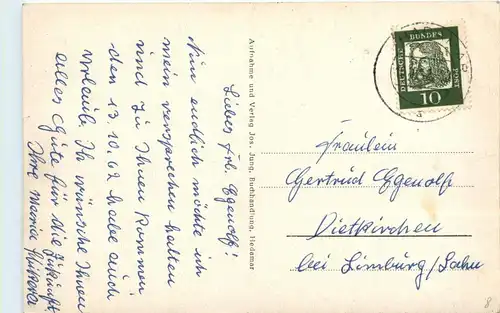 Liebes Frl. Egenolf!
Nun endlich möchte ich
mein versprechen halten
und zu Ihnen kommen,
den 13.10.62 habe auch
Urlaub. Ich wünsche Ihnen
alles Gute für die Zukunft
Ihre Maria
Aufnahme und Verlag Jos. Jung, Buchhandlung, Hadamar
DEUTSCHE BUNDESPOST
10
Fräulein
Gertrud Egenolf
Dietkirchen
bei Limburg/Lahn
8.